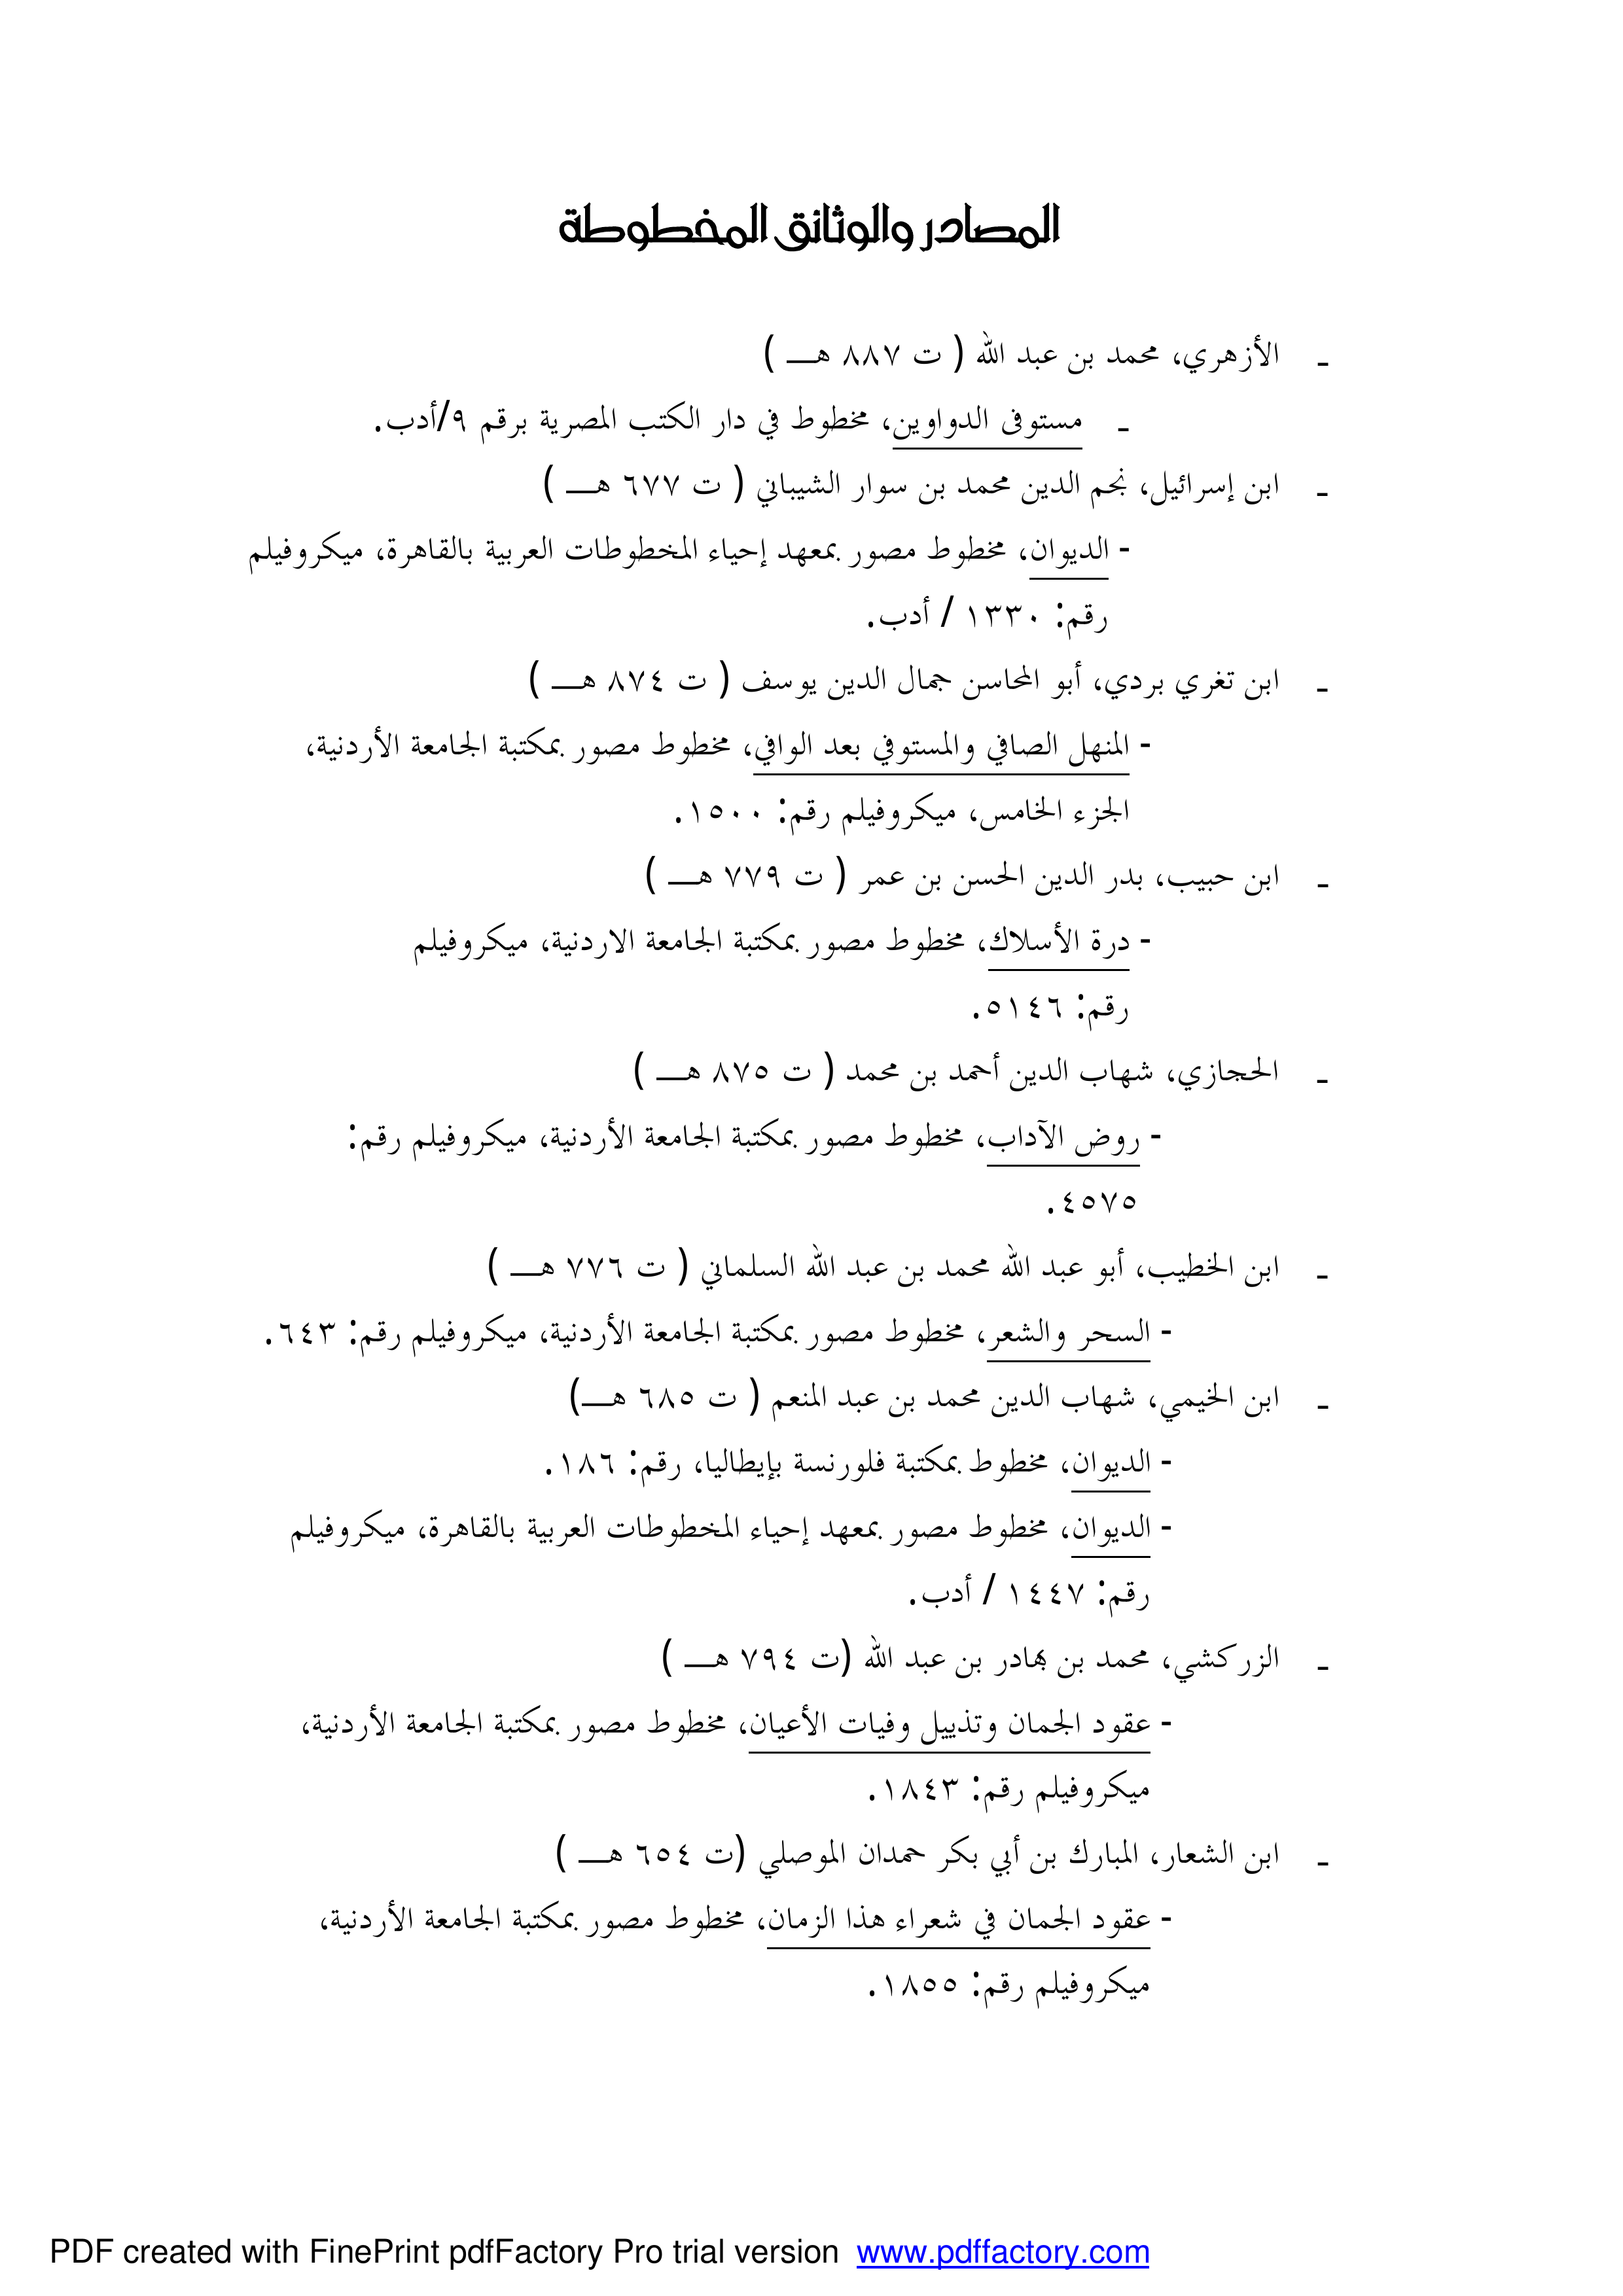 المصادر والوثائق المخطوطة
ـ الأزهري، محمد بن عبد الله ( ت ٨٨٧ هـــ )
ـ مستوفى الدواوين، مخطوط في دار الكتب المصرية برقم ٩/أدب.
ـ ابن إسرائيل، نجم الدين محمد بن سوار الشيباني ( ت ٦٧٧ هـــ )
- الديوان، مخطوط مصور بمعهد إحياء المخطوطات العربية بالقاهرة، ميكروفيلم
رقم: ١٣٣٠ / أدب.
ـ ابن تغري بردي، أبو المحاسن جمال الدين يوسف ( ت ٨٧٤ هـــ )
- المنهل الصافي والمستوفي بعد الوافي، مخطوط مصور بمكتبة الجامعة الأردنية،
الجزء الخامس، ميكروفيلم رقم: ١٥٠٠.
ـ ابن حبيب، بدر الدين الحسن بن عمر ( ت ٧٧٩ هـــ )
- درة الأسلاك، مخطوط مصور بمكتبة الجامعة الاردنية، ميكروفيلم
رقم: ٥١٤٦.
ـ الحجازي، شهاب الدين أحمد بن محمد ( ت ٨٧٥ هـــ )
- روض الآداب، مخطوط مصور بمكتبة الجامعة الأردنية، ميكروفيلم رقم:
٤٥٧٥.
ـ ابن الخطيب، أبو عبد الله محمد بن عبد الله السلماني ( ت ٧٧٦ هـــ )
- السحر والشعر، مخطوط مصور بمكتبة الجامعة الأردنية، ميكروفيلم رقم: ٦٤٣.
ـ ابن الخيمي، شهاب الدين محمد بن عبد المنعم ( ت ٦٨٥ هـــ)
- الديوان، مخطوط بمكتبة فلورنسة بإيطاليا، رقم: ١٨٦.
- الديوان، مخطوط مصور بمعهد إحياء المخطوطات العربية بالقاهرة، ميكروفيلم
رقم: ١٤٤٧ / أدب.
ـ الزركشي، محمد بن بهادر بن عبد الله (ت ٧٩٤ هـــ )
- عقود الجمان وتذييل وفيات الأعيان، مخطوط مصور بمكتبة الجامعة الأردنية،
ميكروفيلم رقم: ١٨٤٣.
ـ ابن الشعار، المبارك بن أبي بكر حمدان الموصلي (ت ٦٥٤ هـــ )
- عقود الجمان في شعراء هذا الزمان، مخطوط مصور بمكتبة الجامعة الأردنية،
ميكروفيلم رقم: ١٨٥٥.
PDF created with FinePrint pdfFactory Pro trial version www.pdffactory.com